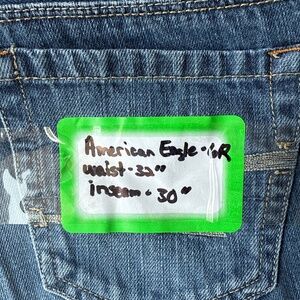 American Eagle - 16R
waist - 32"
inseam - 30"